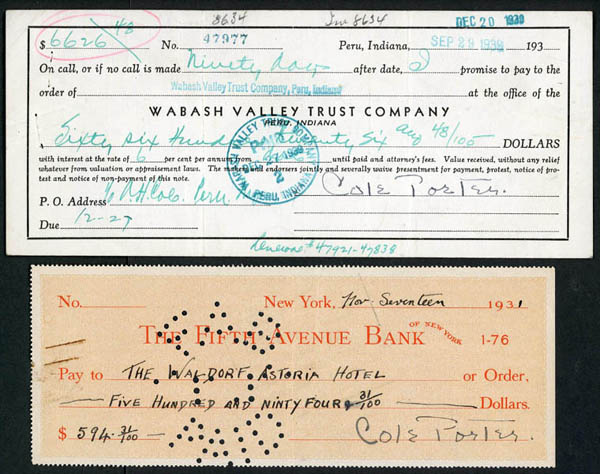 8634 Inv 8634 DEC 20 1939
$ 6626 48 No. 47977 Peru, Indiana, SEP 29 1939 193
On call, or if no call is made Ninety days after date, I promise to pay to the
order of Wabash Valley Trust Company, Peru, Indiana at the office of the
WABASH VALLEY TRUST COMPANY
PERU, INDIANA
Sixty six Hundred Twenty Six and 48/100 DOLLARS
with interest at the rate of 6 per cent per annum from until paid and attorney's fees. Value received, without any relief
whatever from valuation or appraisement laws. The makers and endorsers jointly and severally waive presentment for payment, protest, notice of pro-
test and notice of non-payment of this note.
WABASH VALLEY TRUST COMPANY
PAID
DEC 27 1939
2
PERU, INDIANA
Cole Porter.
P. O. Address Peru
Due 12-27
Renewal # 47921-47838
No. New York, Nov. Seventeen 1931
THE FIFTH AVENUE BANK OF NEW YORK 1-76
Pay to THE WALDORF ASTORIA HOTEL or Order,
FIVE HUNDRED AND NINTY FOUR 31/100 Dollars.
$ 594.31/100 Cole Porter.